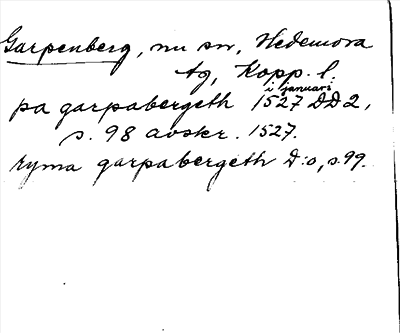 Garpenberg, nu sn, Hedemora
tg, Kopp. l.
i januari
pa garpabergeth 1527 DD2,
s. 98 avskr. 1527.
ryma garpabergeth D:o, s. 99.